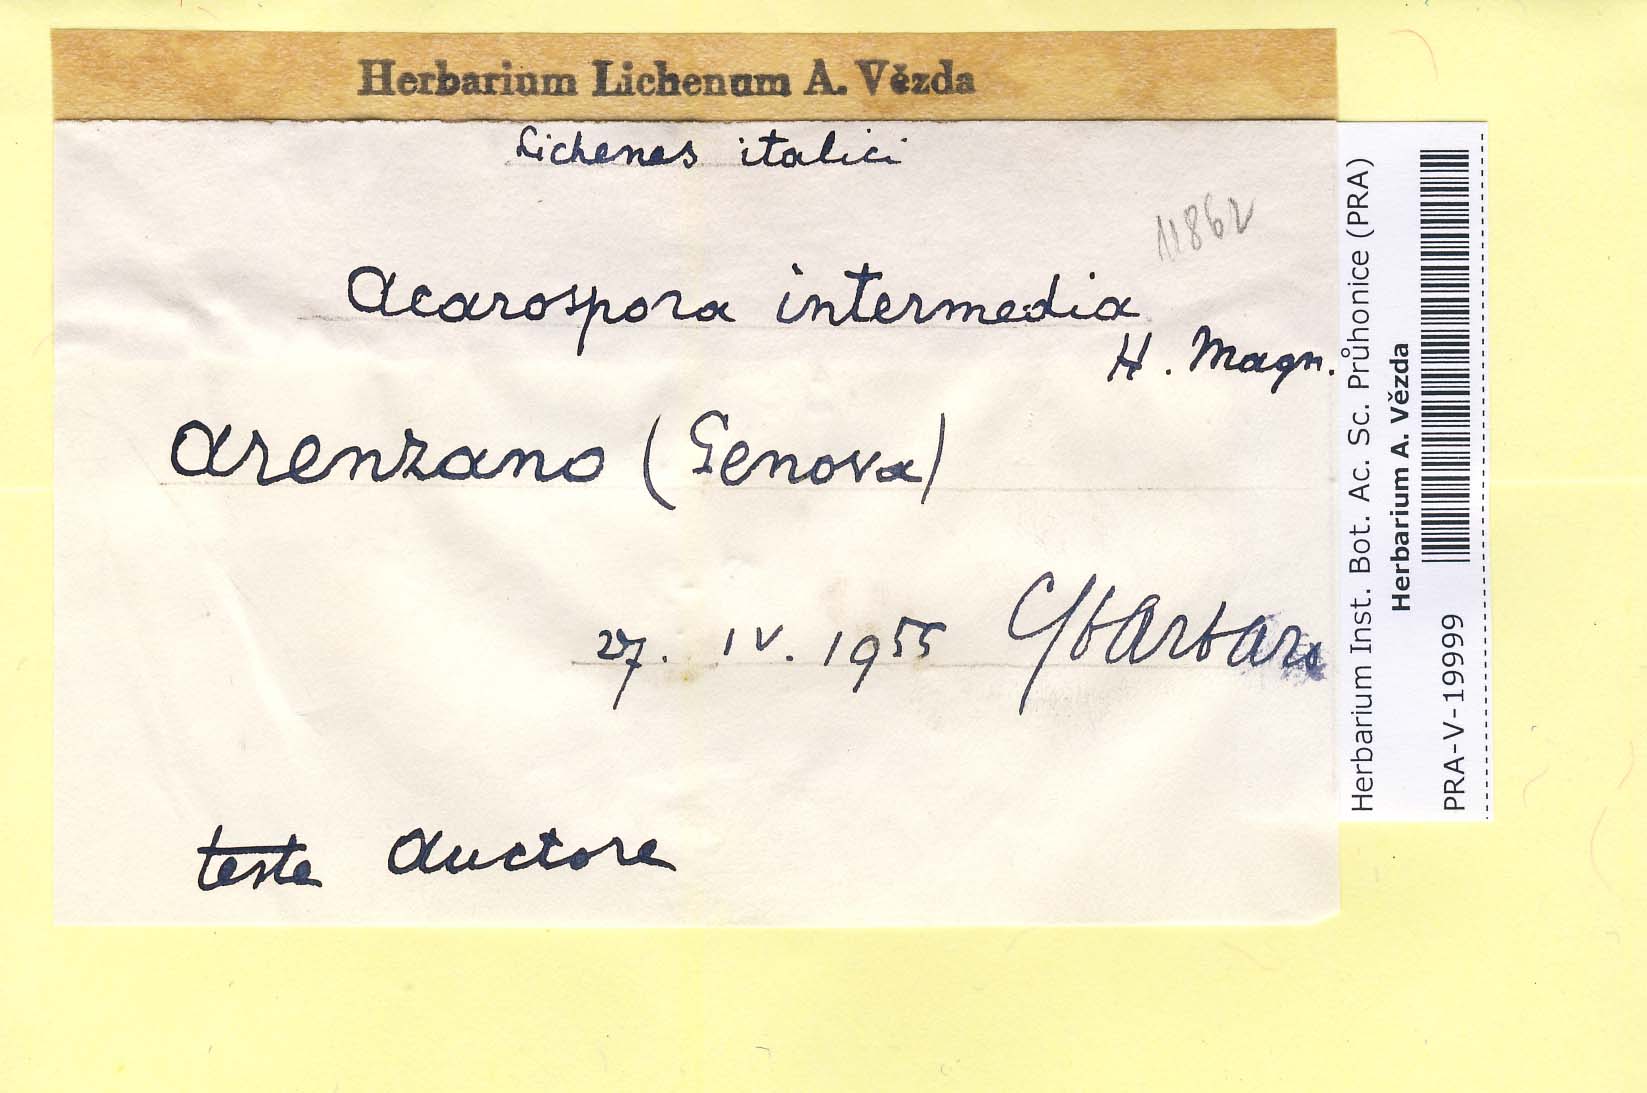 Herbarium Lichenum A. Vězda
Lichenes italici
11862
Acarospora intermedia
H. Magn.
Arenzano (Genova)
27. IV. 1955 CSbarbaro
teste auctore
Herbarium Inst. Bot. Ac. Sc. Průhonice (PRA)
Herbarium A. Vězda
PRA-V-19999